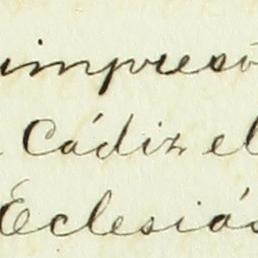 impresó
Cádiz el
Eclesiás